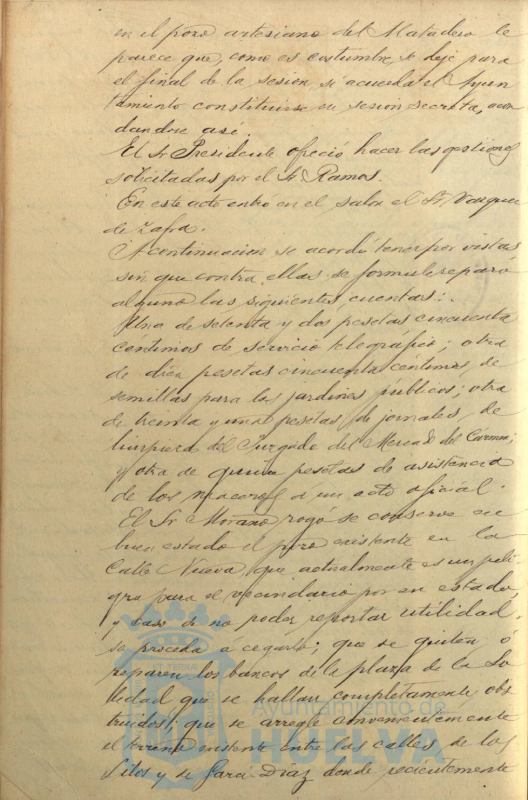 en el pozo artesiano del Matadero le
parece que, como es costumbre se deje para
el final de la sesion, si acuerda el Ayun
tamiento constituirse en sesion secreta, acor
dandose asi.
El Sr Presidente ofreció hacer las gestiones
solicitadas por el Sr Ramos.
En este acto entró en el salon el Sr Vazquez
de Zafra.
A continuacion se acordó tener por vistas
sin que contra ellas se formule reparo
alguno las siguientes cuentas:
Una de setenta y dos pesetas cincuenta
centimos de servicio telegráfico; otra
de diez pesetas cincuenta céntimos, de
semillas para los jardines públicos; otra
de treinta y una pesetas, de jornales, de
limpieza del Juzgado del Mercado del Cármen;
y otra de quince pesetas de asistencia
de los maceros a un acto oficial.
El Sr Morano rogó se conserve en
buen estado el pozo existente en la
Calle Nueva, que actualmente es un peli
gro para el vecindario por su estado,
y caso de no poder reportar utilidad
se proceda á cegarlo; que se quiten ó
reparen los bancos de la plaza de la So
ledad que se hallan completamente obs
truidos; que se arregle convenientemente
el terreno existente entre las calles de los
Silos y de Garci-Diaz donde recientemente
Ayuntamiento de
HUELVA